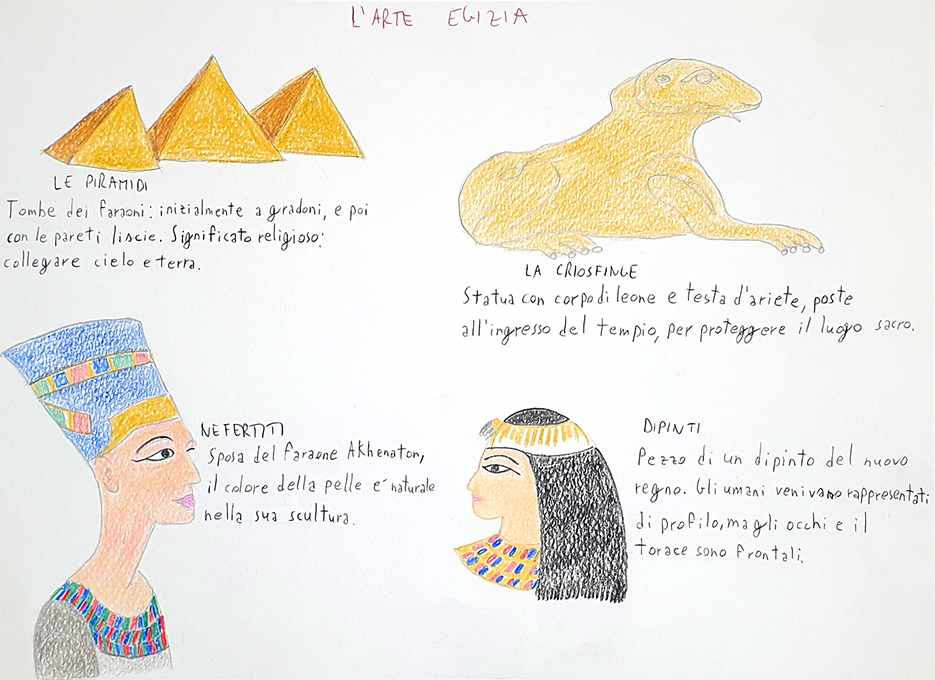 L'ARTE EGIZIA
LE PIRAMIDI
Tombe dei faraoni: inizialmente a gradoni, e poi
con le pareti liscie. Significato religioso:
collegare cielo e terra.
LA CRIOSFINGE
Statua con corpo di leone e testa d'ariete, poste
all'ingresso del tempio, per proteggere il luogo sacro.
NEFERTITI
Sposa del faraone Akhenaton,
il colore della pelle e' naturale
nella sua scultura.
DIPINTI
Pezzo di un dipinto del nuovo
regno. Gli umani venivano rappresentati
di profilo, ma gli occhi e il
torace sono frontali.